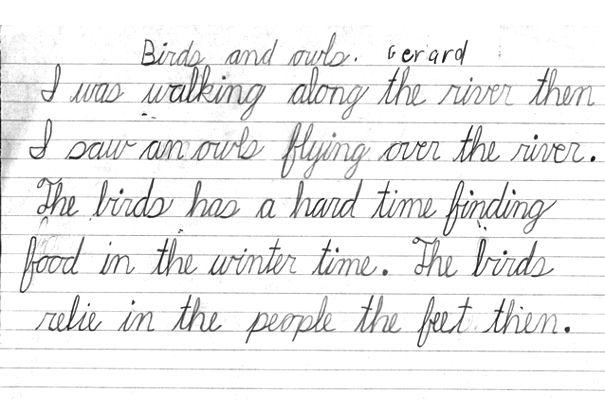 Birds and owls. Gerard
I was walking along the river then
I saw an owls flying over the river.
The birds has a hard time finding
food in the winter time. The birds
relie in the people the feet then.